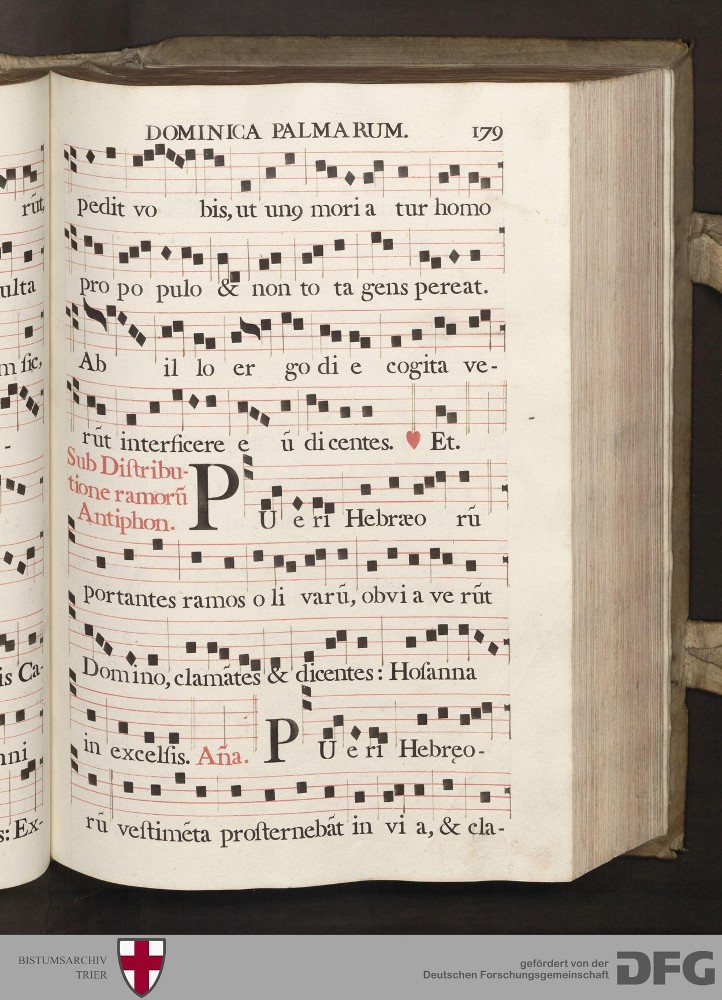 DOMINICA PALMARUM. 179
rũt,
pedit vo bis, ut unꝯ mori a tur homo
ulta
pro po pulo & non to ta gens pereat.
m ſic,
Ab il lo er go di e cogita ve-
-
rũt interficere e ũ di centes. ♥ Et.
Sub Diſtribu-
tione ramorũ
Antiphon.
PU e ri Hebræo rũ
portantes ramos o li varũ, obvi a ve rũt
is Ca-
Domino, clamãtes & dicentes: Hoſanna
nni
in excelſis. Aña. PU e ri Hebręo-
s: Ex-
rũ veſtimẽta proſternebãt in vi a, & cla-
BISTUMSARCHIV
TRIER
gefördert von der
Deutschen Forschungsgemeinschaft
DFG